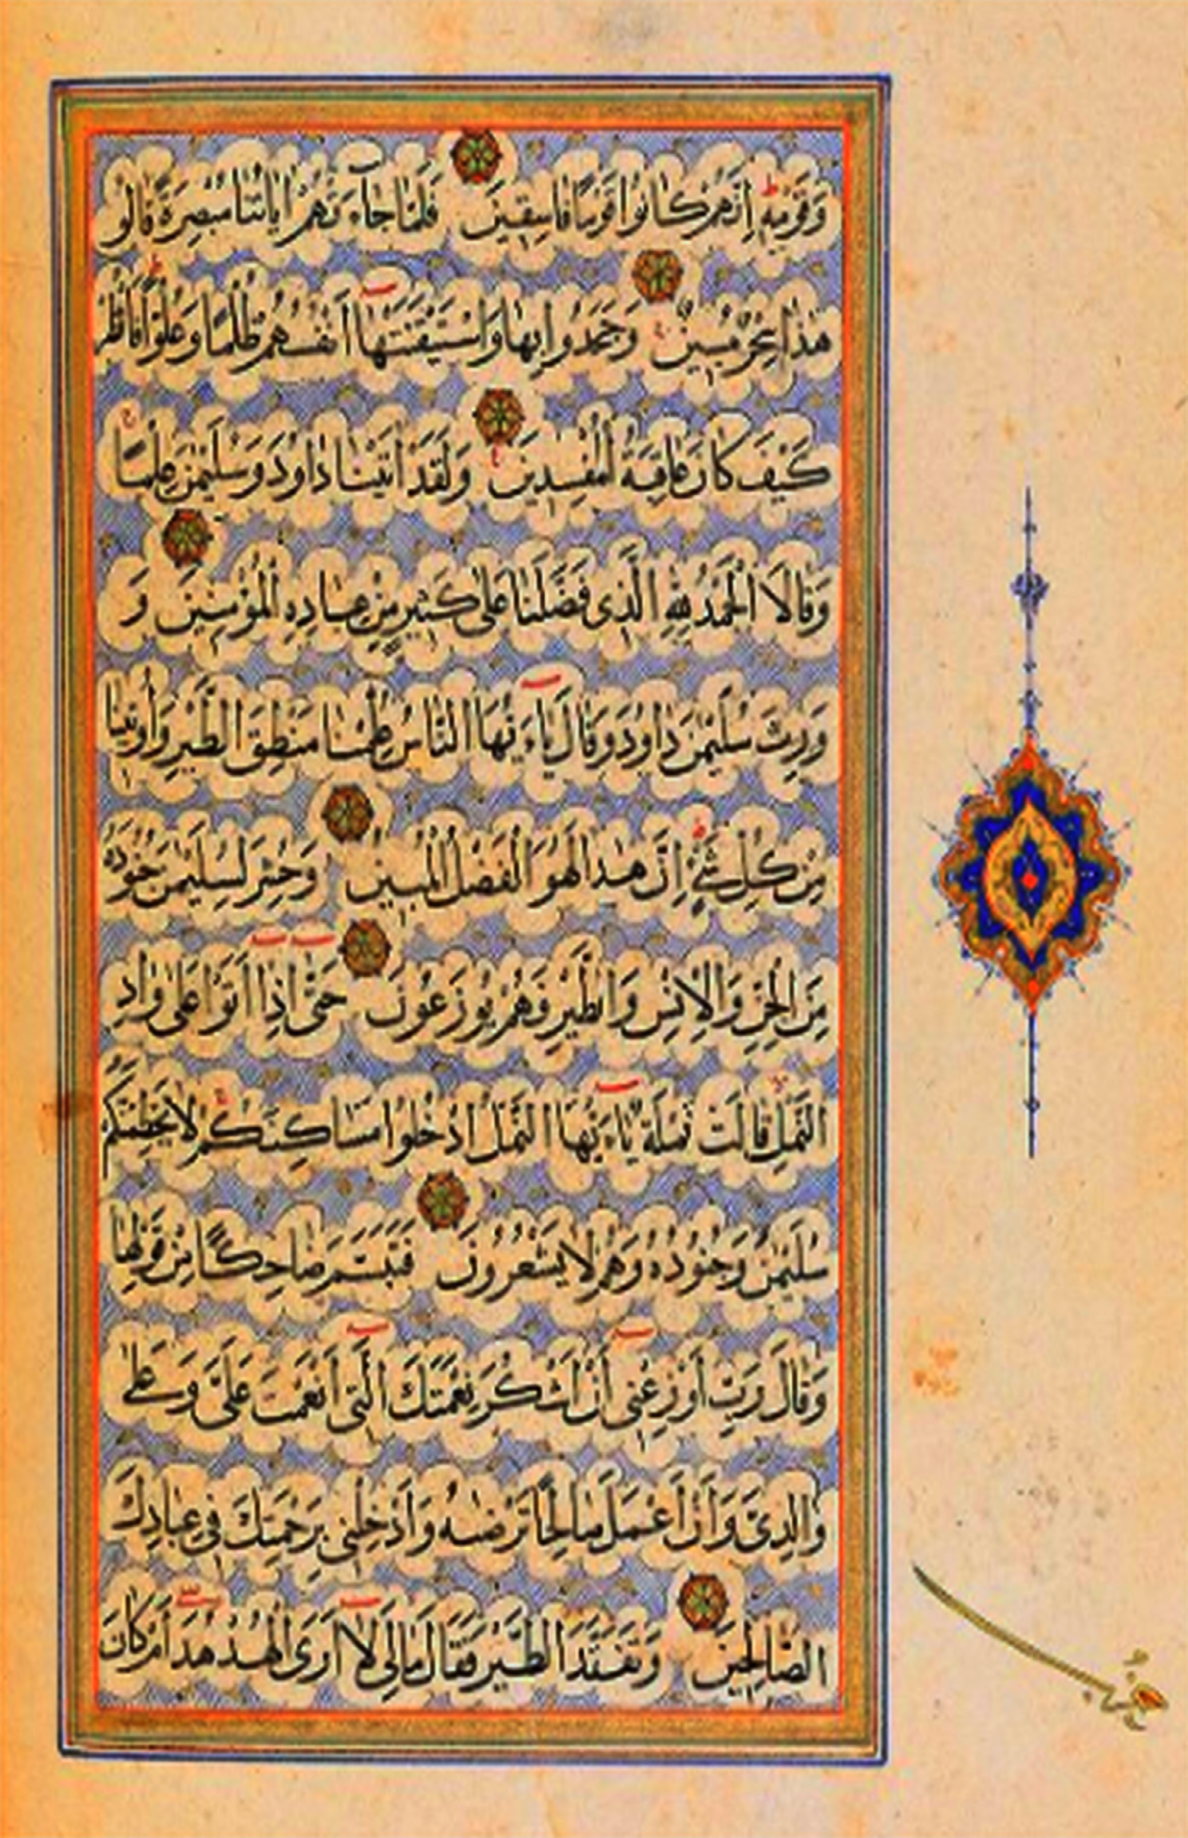 وَقَوْمِهِ إِنَّهُمْ كَانُوا قَوْمًا فَاسِقِينَ فَلَمَّا جَاءَتْهُمْ ايَاتُنَا مُبْصِرَةً قَالُو
هٰذَا سِحْرٌ مُبِينٌ وَجَحَدُوا بِهَا وَاسْتَيْقَنَتْهَا اَنْفُسُهُمْ ظُلْمًا وَعُلُوًّا فَانْظُرْ
كَيْفَ كَانَ عَاقِبَةُ الْمُفْسِدِينَ وَلَقَدْ اٰتَيْنَا دَاوُدَ وَسُلَيْمٰنَ عِلْمًا
وَقَالَا الْحَمْدُ لِلّٰهِ الَّذِى فَضَّلَنَا عَلٰى كَثِيرٍ مِنْ عِبَادِهِ الْمُؤْمِنِينَ وَ
وَرِثَ سُلَيْمٰنُ دَاوُدَ وَقَالَ يَاءَيُّهَا النَّاسُ عُلِّمْنَا مَنْطِقَ الطَّيْرِ وَأُوتِينَا
مِنْ كُلِّ شَىْءٍ إِنَّ هٰذَا لَهُوَ الْفَضْلُ الْمُبِينُ وَحُشِرَ لِسُلَيْمٰنَ جُنُودُهُ
مِنَ الْجِنِّ وَالْاِنْسِ وَالطَّيْرِ فَهُمْ يُوزَعُونَ حَتّٰى اِذَا اَتَوْا عَلٰى وَادِ
النَّمْلِ قَالَتْ نَمْلَةٌ يَاءَيُّهَا النَّمْلُ ادْخُلُوا مَسَاكِنَكُمْ لَا يَحْطِمَنَّكُمْ
سُلَيْمٰنُ وَجُنُودُهُ وَهُمْ لَا يَشْعُرُونَ فَتَبَسَّمَ ضَاحِكًا مِنْ قَوْلِهَا
وَقَالَ رَبِّ اَوْزِعْنِى اَنْ اَشْكُرَ نِعْمَتَكَ الَّتِى اَنْعَمْتَ عَلَىَّ وَعَلٰى
وَالِدَىَّ وَاَنْ اَعْمَلَ صَالِحًا تَرْضٰهُ وَاَدْخِلْنِى بِرَحْمَتِكَ فِى عِبَادِكَ
الصَّالِحِينَ وَتَفَقَّدَ الطَّيْرَ فَقَالَ مَالِىَ لَا اَرَى الْهُدْهُدَ اَمْ كَانَ